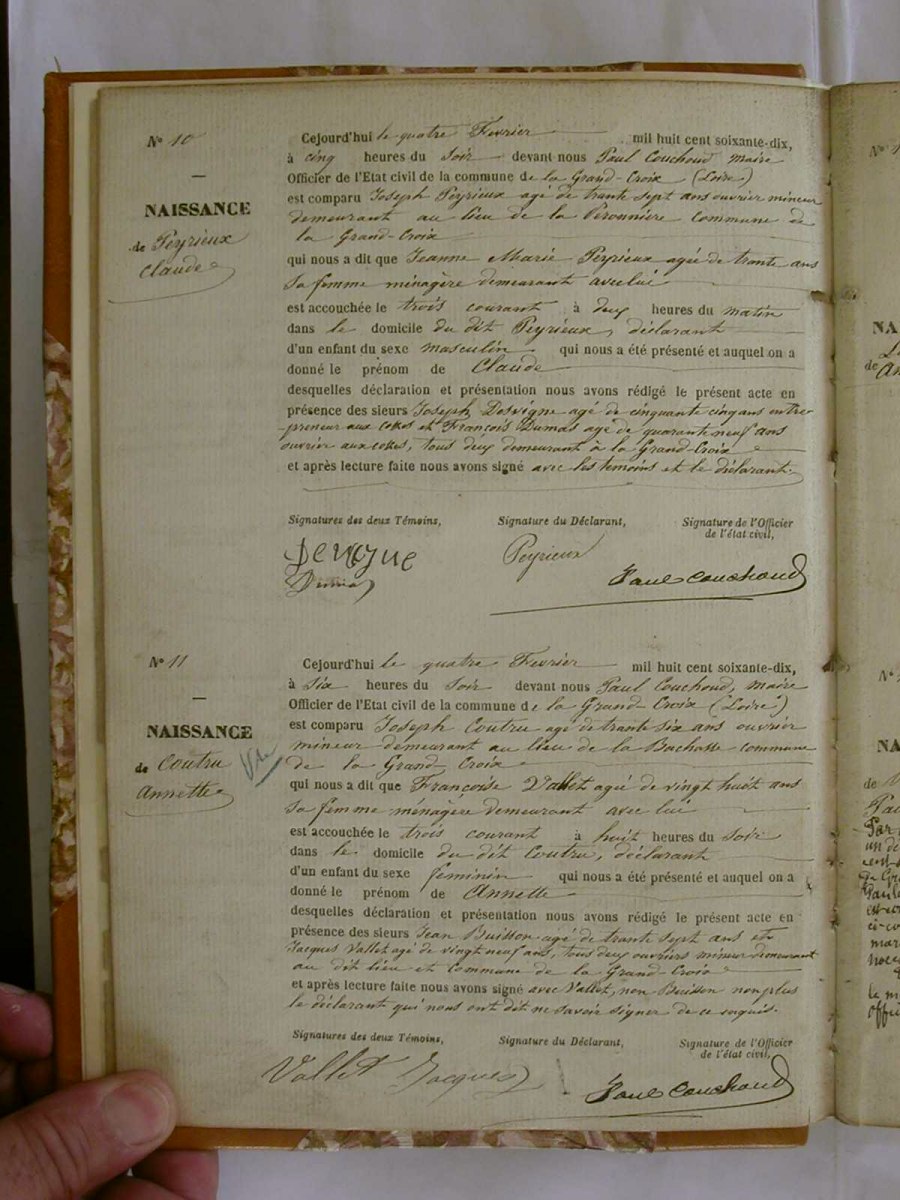 Nº 10
NAISSANCE
de Peyrieux
Claude
Cejourd'hui le quatre Fevrier mil huit cent soixante-dix,
à cinq heures du Soir devant nous Paul Couchoud maire
Officier de l'Etat civil de la commune de la Grand-Croix (Loire)
est comparu Joseph Peyrieux agé de trante sept ans ouvrier mineur
demeurant au lieu de la Peronnière commune de
la Grand-Croix
qui nous a dit que Jeanne Marie Peyrieux agée de trante ans
Sa femme ménagère demeurant avec lui
est accouchée le trois courant à deux heures du matin
dans le domicile du dit Peyrieux, déclarant
d'un enfant du sexe masculin qui nous a été présenté et auquel on a
donné le prénom de Claude
desquelles déclaration et présentation nous avons rédigé le présent acte en
présence des sieurs Joseph Desvigne agé de cinquante cinq ans entre
-preneur aux cokes et François Dumas agé de quarante neuf ans
ouvrier aux cokes, tous deux demeurant à la Grand-Croix
et après lecture faite nous avons signé avec les temoins et le déclarant.
Signatures des deux Témoins, Signature du Déclarant, Signature de l'Officier
de l'état civil,
Peyrieux
Dumas
Paul Couchoud
Nº 11
NAISSANCE
de Coutru
Annette
Cejourd'hui le quatre Fevrier mil huit cent soixante-dix,
à Six heures du Soir devant nous Paul Couchoud, maire
Officier de l'Etat civil de la commune de la Grand Croix (Loire)
est comparu Joseph Coutru agé de trante six ans ouvrier
mineur demeurant au lieu de la Bachasse commune
de la Grand Croix
qui nous a dit que Françoise Vallet agée de vingt huit ans
Sa femme ménagère demeurant avec lui
est accouchée le trois courant à huit heures du Soir
dans le domicile du dit Coutru, déclarant
d'un enfant du sexe feminin qui nous a été présenté et auquel on a
donné le prénom de Annette
desquelles déclaration et présentation nous avons rédigé le présent acte en
présence des sieurs Jean Buisson agé de trante sept ans et
Jacques Vallet agé de vingt neuf ans, tous deux ouvriers mineur demeurant
au dit lieu et commune de la Grand Croix
et après lecture faite nous avons signé avec Vallet, non Buisson non plus
le déclarant qui nous ont dit ne savoir signer de ce enquis.
Signatures des deux Témoins, Signature du Déclarant, Signature de l'Officier
de l'état civil,
Vallet Jacques
Paul Couchoud